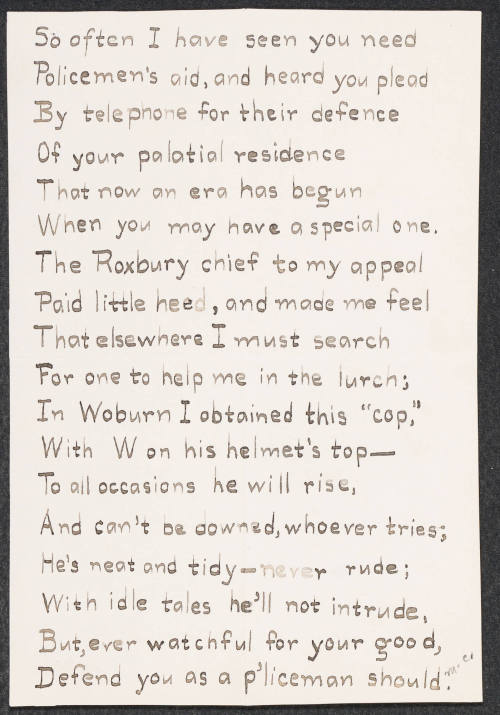 So often I have seen you need
Policemen's aid, and heard you plead
By telephone for their defence
Of your palatial residence
That now an era has begun
When you may have a special one.
The Roxbury chief to my appeal
Paid little heed, and made me feel
That elsewhere I must search
For one to help me in the lurch;
In Woburn I obtained this "cop,"
With W on his helmet's top—
To all occasions he will rise,
And can't be downed, whoever tries;
He's neat and tidy—never rude;
With idle tales he'll not intrude,
But, ever watchful for your good,
Defend you as a p'liceman should.